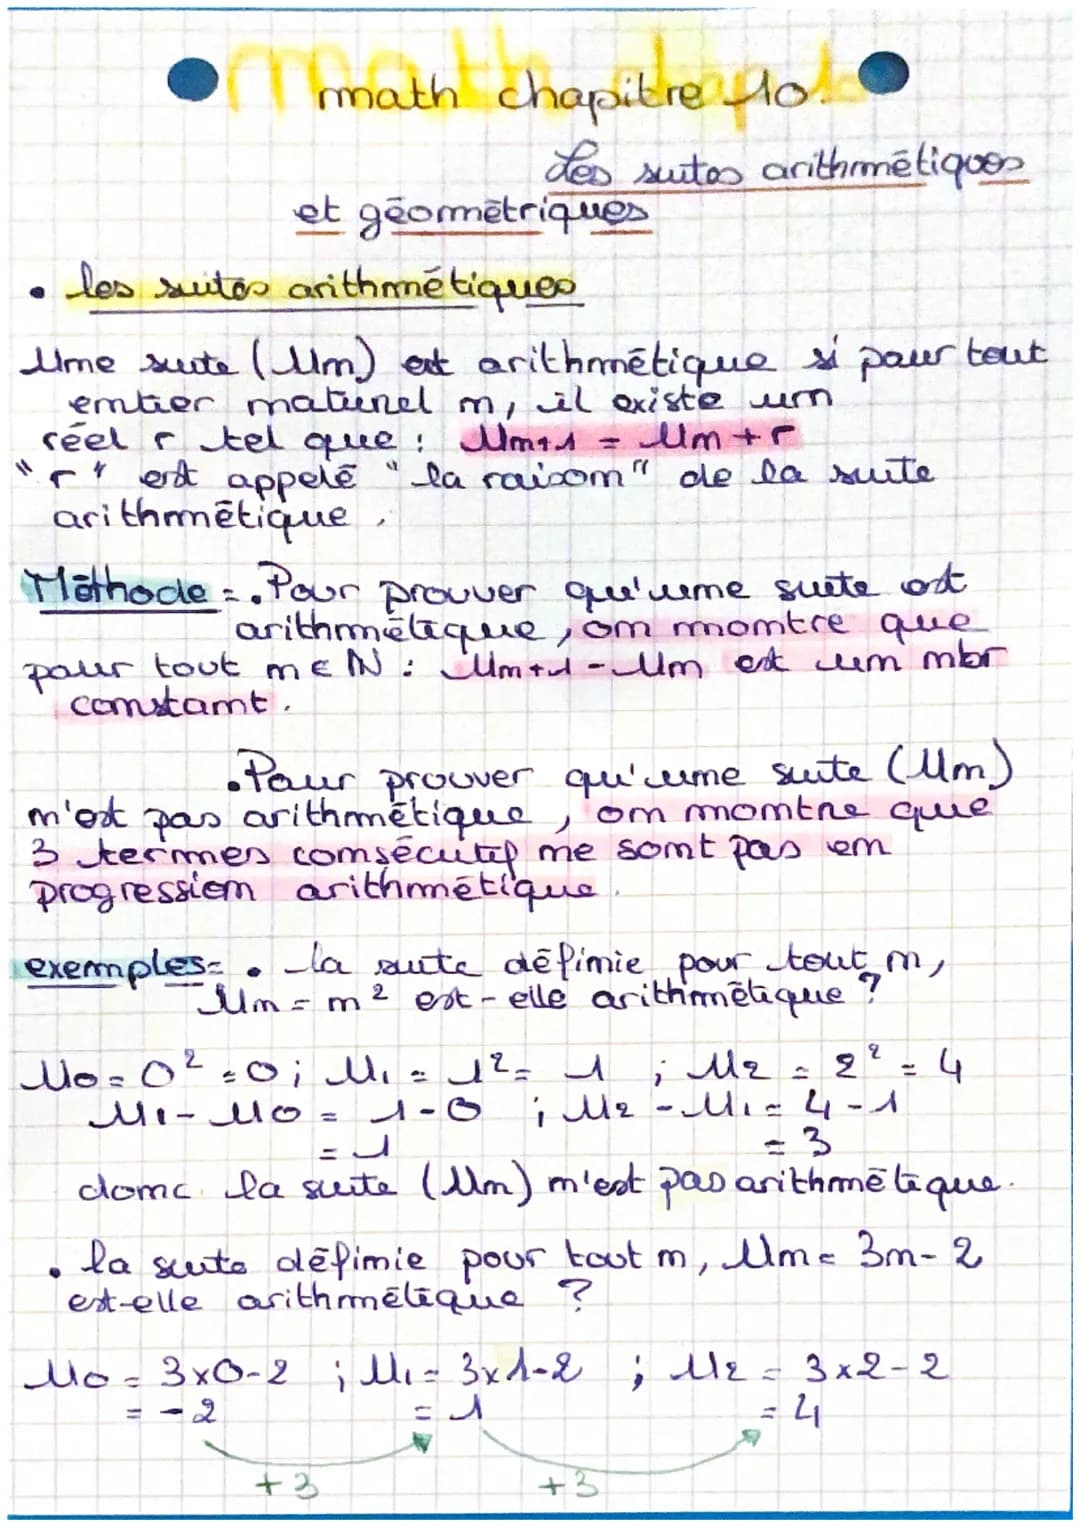 math chapitre 10.
Les suites arithmétiques
et géométriques
• les suites arithmétiques
Une suite (Un) est arithmétique si pour tout
entier naturel n, il existe un
réel r tel que : Un+1 = Un + r
"r" est appelé "la raison" de la suite
arithmétique.
Méthode = • Pour prouver qu'une suite est
arithmétique, on montre que
pour tout n ∈ ℕ : Un+1 - Un est un nbr
constant.
• Pour prouver qu'une suite (Un)
n'est pas arithmétique, on montre que
3 termes consécutif ne sont pas en
progression arithmétique.
exemples = • la suite définie pour tout n,
Un = n² est-elle arithmétique ?
U0 = 0² = 0 ; U1 = 1² = 1 ; U2 = 2² = 4
U1 - U0 = 1 - 0 ; U2 - U1 = 4 - 1
= 1 = 3
donc la suite (Un) n'est pas arithmétique.
• la suite définie pour tout n, Un = 3n - 2
est-elle arithmétique ?
U0 = 3x0-2 ; U1 = 3x1-2 ; U2 = 3x2-2
= -2 = 1 = 4
+3 +3